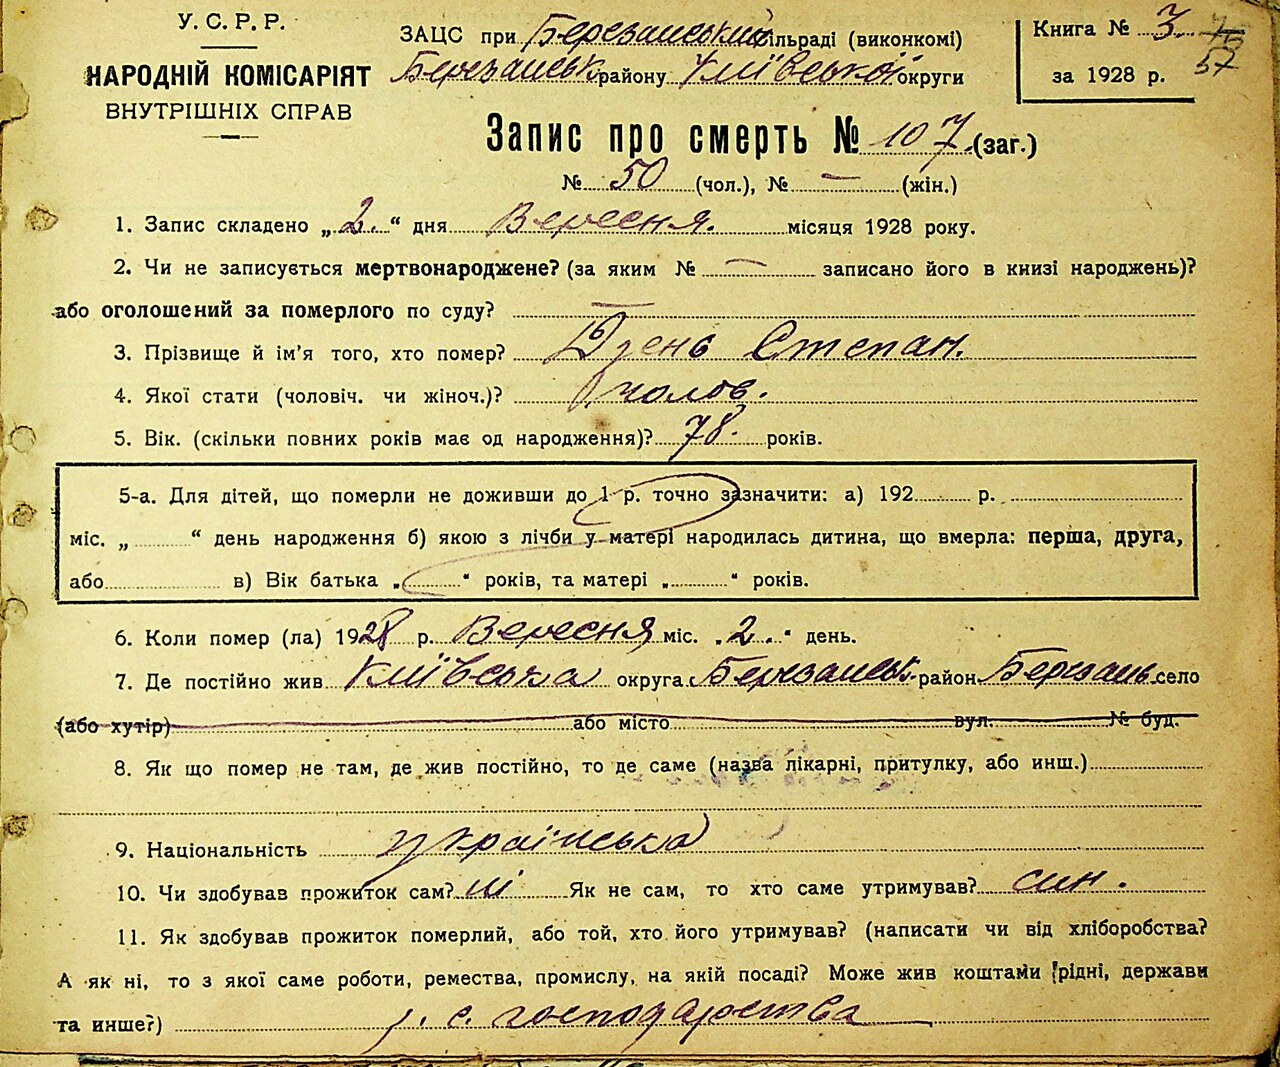 У. С. Р. Р.
НАРОДНІЙ КОМІСАРІЯТ
ВНУТРІШНІХ СПРАВ
ЗАЦС при Березанський сільраді (виконкомі)
Березанськ. району Київської округи
Книга № 3.
за 1928 р.
75
57
Запис про смерть № 107 (заг.)
№ 50 (чол.), № — (жін.)
1. Запис складено „2.“ дня Вересня. місяця 1928 року.
2. Чи не записується мертвонароджене? (за яким № — записано його в книзі народжень)?
або оголошений за померлого по суду? —
3. Прізвище й ім'я того, хто помер? Дзень Степан.
4. Якої стати (чоловіч. чи жіноч.)? чолов.
5. Вік. (скільки повних років має од народження)? 78. років.
5-а. Для дітей, що померли не доживши до 1 р. точно зазначити: а) 192 р.
міс. „ “ день народження б) якою з лічби у матері народилась дитина, що вмерла: перша, друга,
або в) Вік батька „ “ років, та матері „ “ років.
6. Коли помер (ла) 1928 р. Вересня міс. „2.“ день.
7. Де постійно жив Київська округа Березанськ. район Березань село
(або хутір) або місто вул. № буд.
8. Як що помер не там, де жив постійно, то де саме (назва лікарні, притулку, або инш.)
9. Національність українська
10. Чи здобував прожиток сам? ні Як не сам, то хто саме утримував? син.
11. Як здобував прожиток померлий, або той, хто його утримував? (написати чи від хліборобства?
А як ні, то з якої саме роботи, ремества, промислу, на якій посаді? Може жив коштами рідні, держави
та инше?) с. господарства